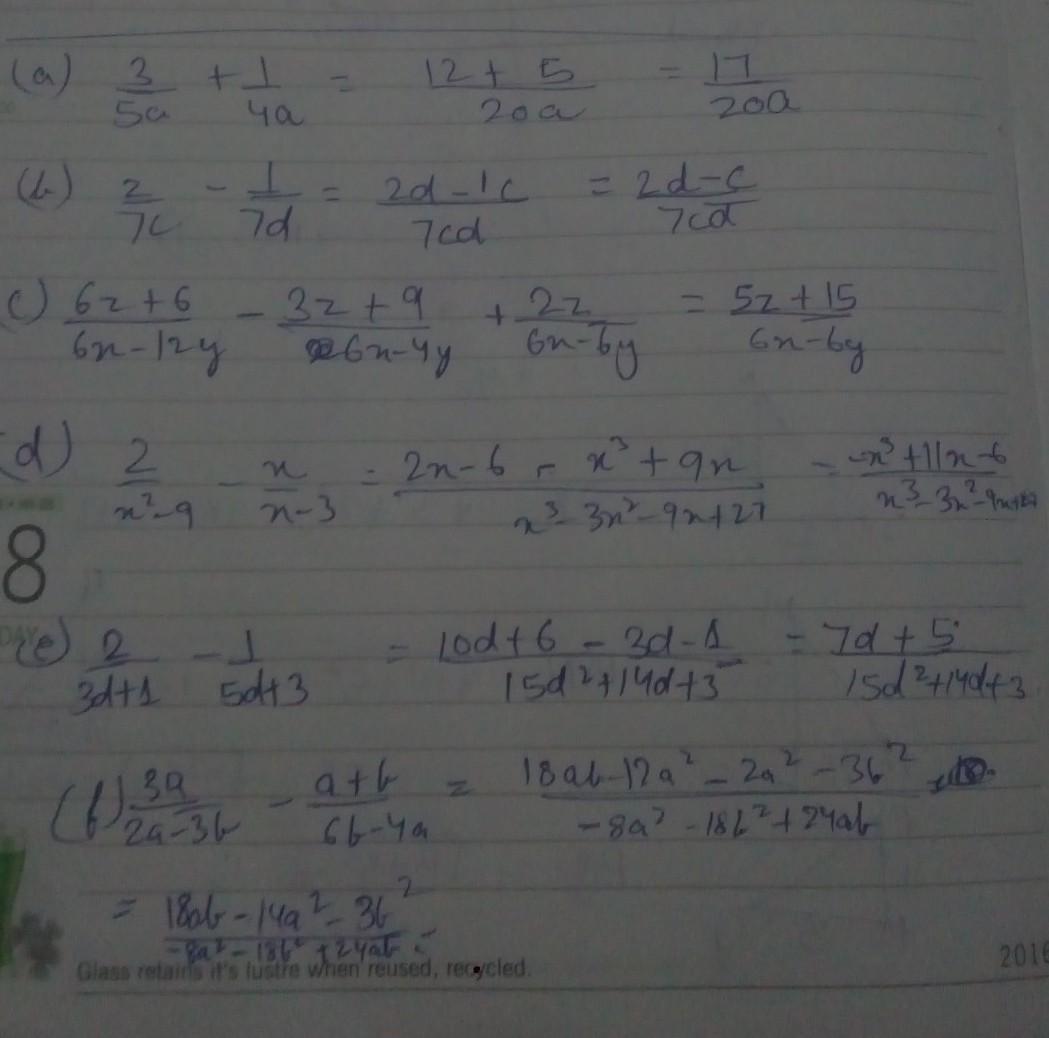 (a) 3/5a + 1/4a = 12 + 5/20a = 17/20a
(b) 2/7c - 1/7d = 2d - 1c/7cd = 2d - c/7cd
c) 6z + 6/6x - 12y - 3z + 9/6x - 4y + 2z/6x - 6y = 5z + 15/6x - 6y
(d) 2/x² - 9 - x/x - 3 = 2x - 6 - x³ + 9x/x³ - 3x² - 9x + 27 = -x³ + 11x - 6/x³ - 3x² - 9x + 27
8
DAY
(e) 2/3d + 1 - 1/5d + 3 = 10d + 6 - 3d - 1/15d² + 14d + 3 = 7d + 5/15d² + 14d + 3
(f) 3a/2a - 3b - a + b/6b - 4a = 18ab - 12a² - 2a² - 3b²/-8a² - 18b² + 24ab
= 18ab - 14a² - 3b²/-8a² - 18b² + 24ab
Glass retains it's lustre when reused, recycled.
2016